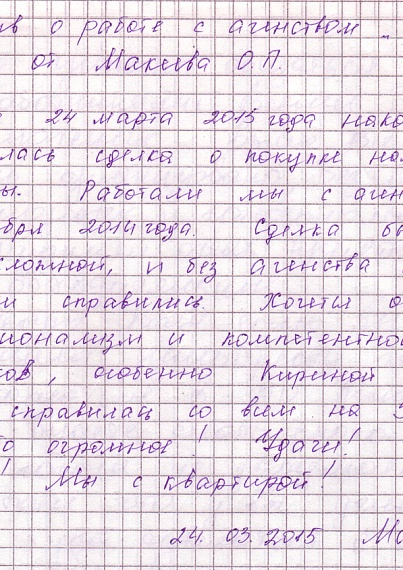 в о работе с агенством „
от Макеева О.П.
24 марта 2015 года нако
лась сделка о покупке на
ы. Работали мы с аген
бря 2014 года. Сделка бы
сложной, и без агенства
и справились. Хочется о
ионализм и компетентно
ков, особенно Кириной
справилась со всем на 5
о огромное! Удачи!
! Мы с квартирой!
24. 03. 2015 Ма